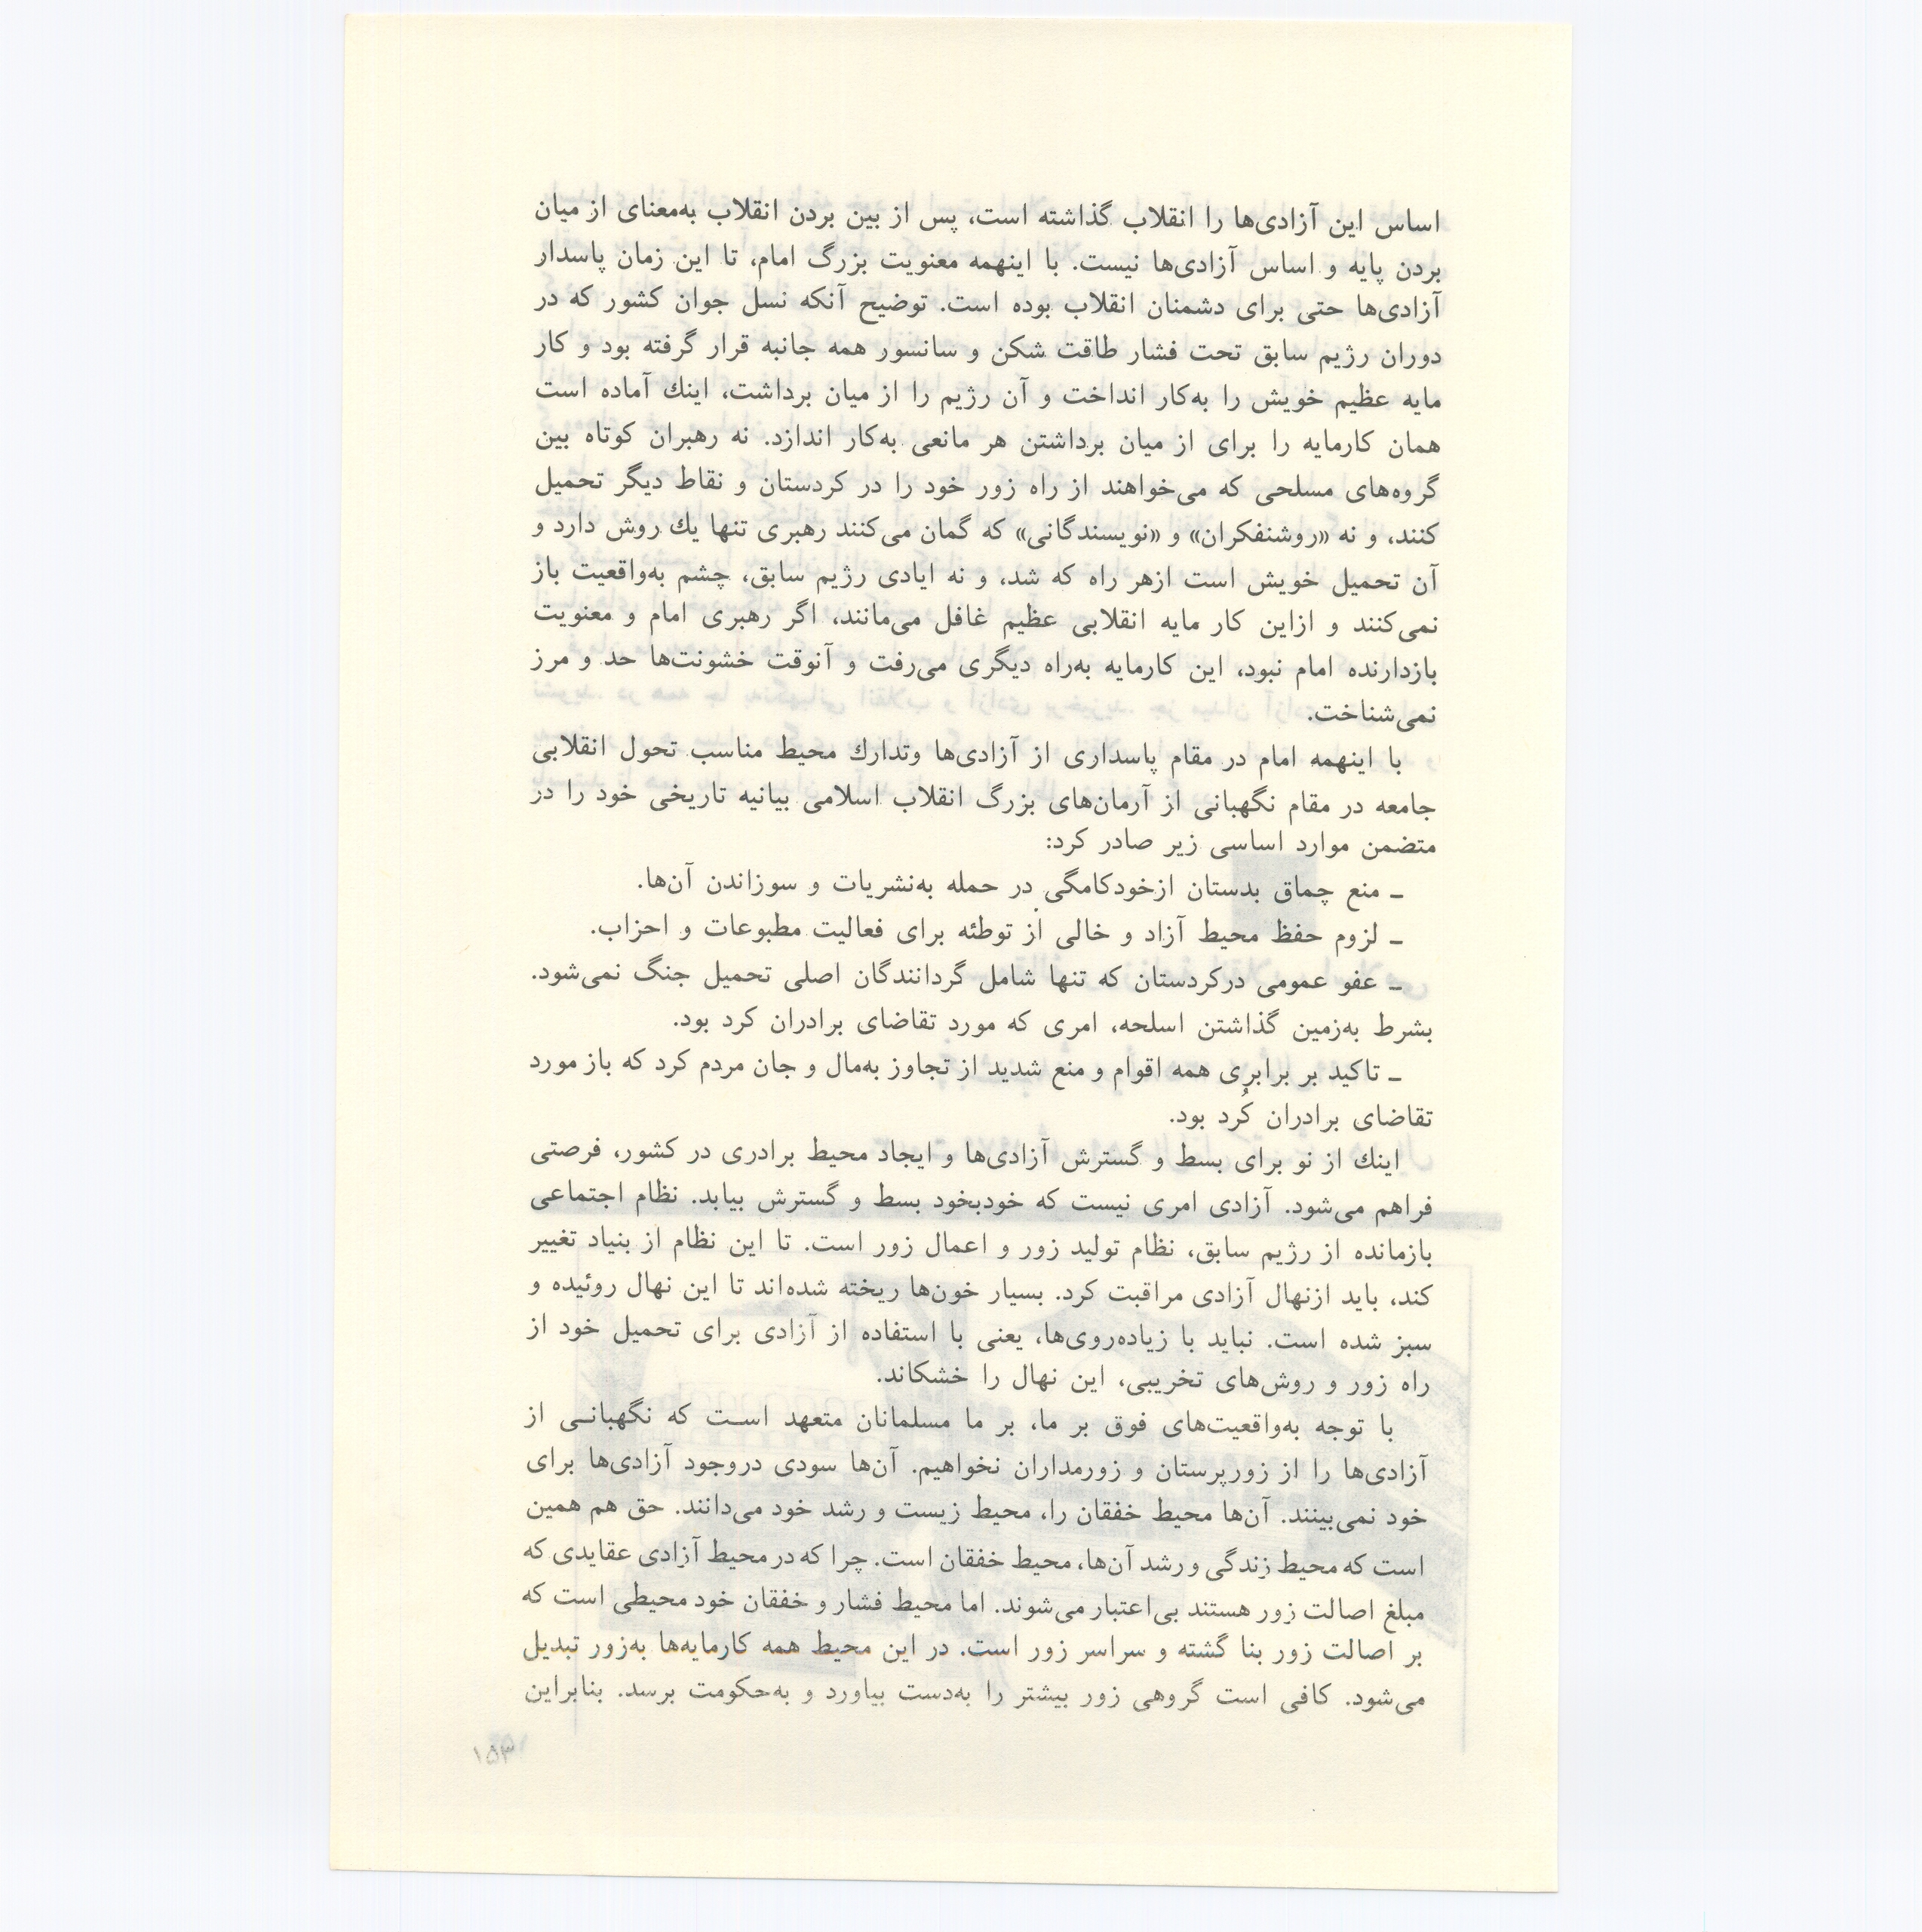 اساس این آزادی‌ها را انقلاب گذاشته است، پس از بین بردن انقلاب به‌معنای از میان
بردن پایه و اساس آزادی‌ها نیست. با اینهمه معنویت بزرگ امام، تا این زمان پاسدار
آزادی‌ها حتی برای دشمنان انقلاب بوده است. توضیح آنکه نسل جوان کشور که در
دوران رژیم سابق تحت فشار طاقت شکن و سانسور همه جانبه قرار گرفته بود و کار
مایه عظیم خویش را به‌کار انداخت و آن رژیم را از میان برداشت، اینك آماده است
همان کارمایه را برای از میان برداشتن هر مانعی به‌کار اندازد. نه رهبران کوتاه بین
گروه‌های مسلحی که می‌خواهند از راه زور خود را در کردستان و نقاط دیگر تحمیل
کنند، و نه «روشنفکران» و «نویسندگانی» که گمان می‌کنند رهبری تنها یك روش دارد و
آن تحمیل خویش است ازهر راه که شد، و نه ایادی رژیم سابق، چشم به‌واقعیت باز
نمی‌کنند و ازاین کار مایه انقلابی عظیم غافل می‌مانند، اگر رهبری امام و معنویت
بازدارنده امام نبود، این کارمایه به‌راه دیگری می‌رفت و آنوقت خشونت‌ها حد و مرز
نمی‌شناخت.
با اینهمه امام در مقام پاسداری از آزادی‌ها وتدارك محیط مناسب تحول انقلابی
جامعه در مقام نگهبانی از آرمان‌های بزرگ انقلاب اسلامی بیانیه تاریخی خود را در
متضمن موارد اساسی زیر صادر کرد:
ـ منع چماق بدستان ازخودکامگی در حمله به‌نشریات و سوزاندن آن‌ها.
ـ لزوم حفظ محیط آزاد و خالی از توطئه برای فعالیت مطبوعات و احزاب.
ـ عفو عمومی درکردستان که تنها شامل گردانندگان اصلی تحمیل جنگ نمی‌شود.
بشرط به‌زمین گذاشتن اسلحه، امری که مورد تقاضای برادران کرد بود.
ـ تاکید بر برابری همه اقوام و منع شدید از تجاوز به‌مال و جان مردم کرد که باز مورد
تقاضای برادران کُرد بود.
اینك از نو برای بسط و گسترش آزادی‌ها و ایجاد محیط برادری در کشور، فرصتی
فراهم می‌شود. آزادی امری نیست که خودبخود بسط و گسترش بیابد. نظام اجتماعی
بازمانده از رژیم سابق، نظام تولید زور و اعمال زور است. تا این نظام از بنیاد تغییر
کند، باید ازنهال آزادی مراقبت کرد. بسیار خون‌ها ریخته شده‌اند تا این نهال روئیده و
سبز شده است. نباید با زیاده‌روی‌ها، یعنی با استفاده از آزادی برای تحمیل خود از
راه زور و روش‌های تخریبی، این نهال را خشکاند.
با توجه به‌واقعیت‌های فوق بر ما، بر ما مسلمانان متعهد اسـت که نگهبانـی از
آزادی‌ها را از زورپرستان و زورمداران نخواهیم. آن‌ها سودی دروجود آزادی‌ها برای
خود نمی‌بینند. آن‌ها محیط خفقان را، محیط زیست و رشد خود می‌دانند. حق هم همین
است که محیط زندگی و رشد آن‌ها، محیط خفقان است. چرا که در محیط آزادی عقایدی که
مبلغ اصالت زور هستند بی‌اعتبار می‌شوند. اما محیط فشار و خفقان خود محیطی است که
بر اصالت زور بنا گشته و سراسر زور است. در این محیط همه کارمایه‌ها به‌زور تبدیل
می‌شود. کافی است گروهی زور بیشتر را به‌دست بیاورد و به‌حکومت برسد. بنابراین
۱۵۳